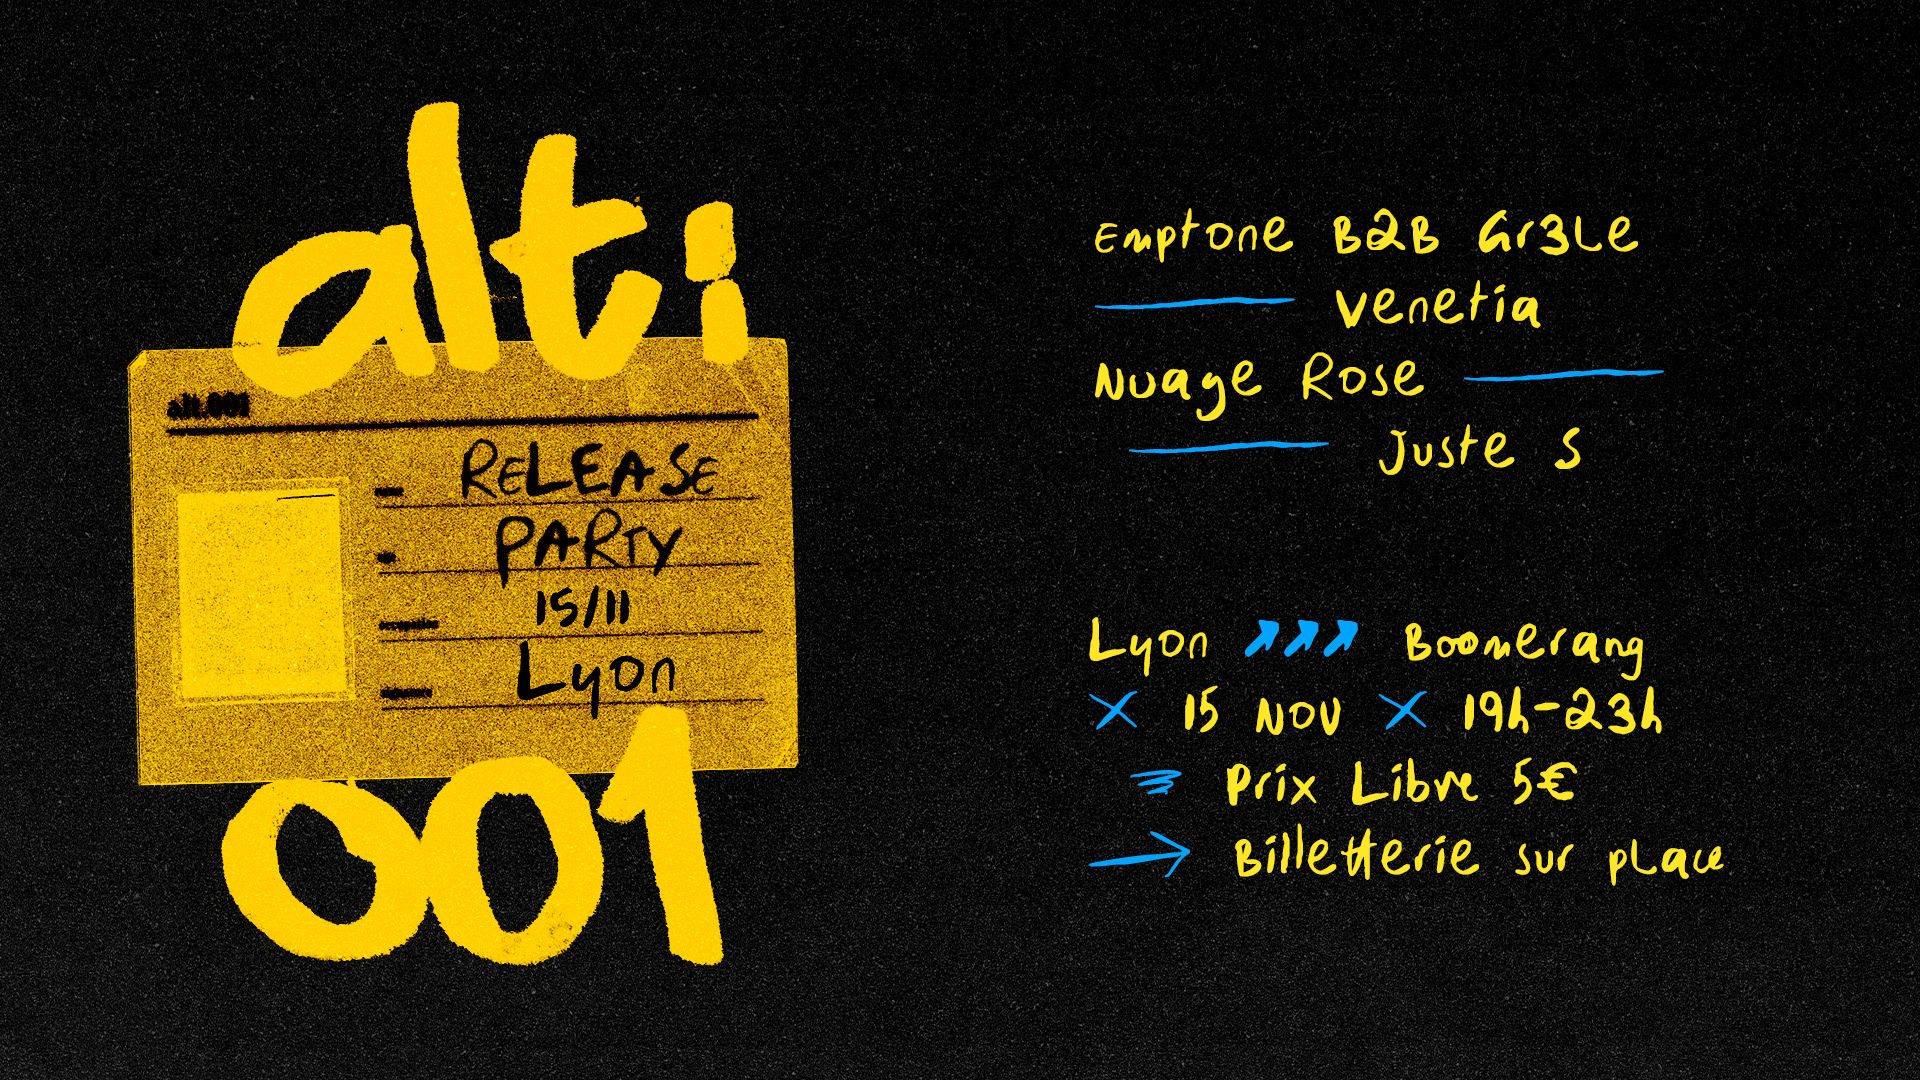 alti
alt.001
RELEASE
PARTY
15/11
Lyon
001
Emptone B2B Gr3Le
Venetia
Nuage Rose
Juste S
Lyon Boomerang
15 NOV 19h-23h
Prix Libre 5€
Billetterie sur place